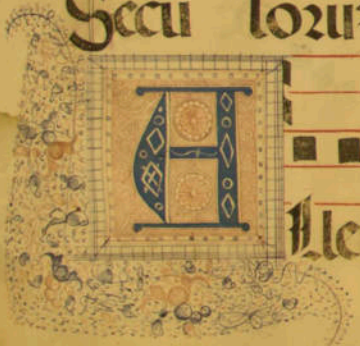 Secu loru
A
lle